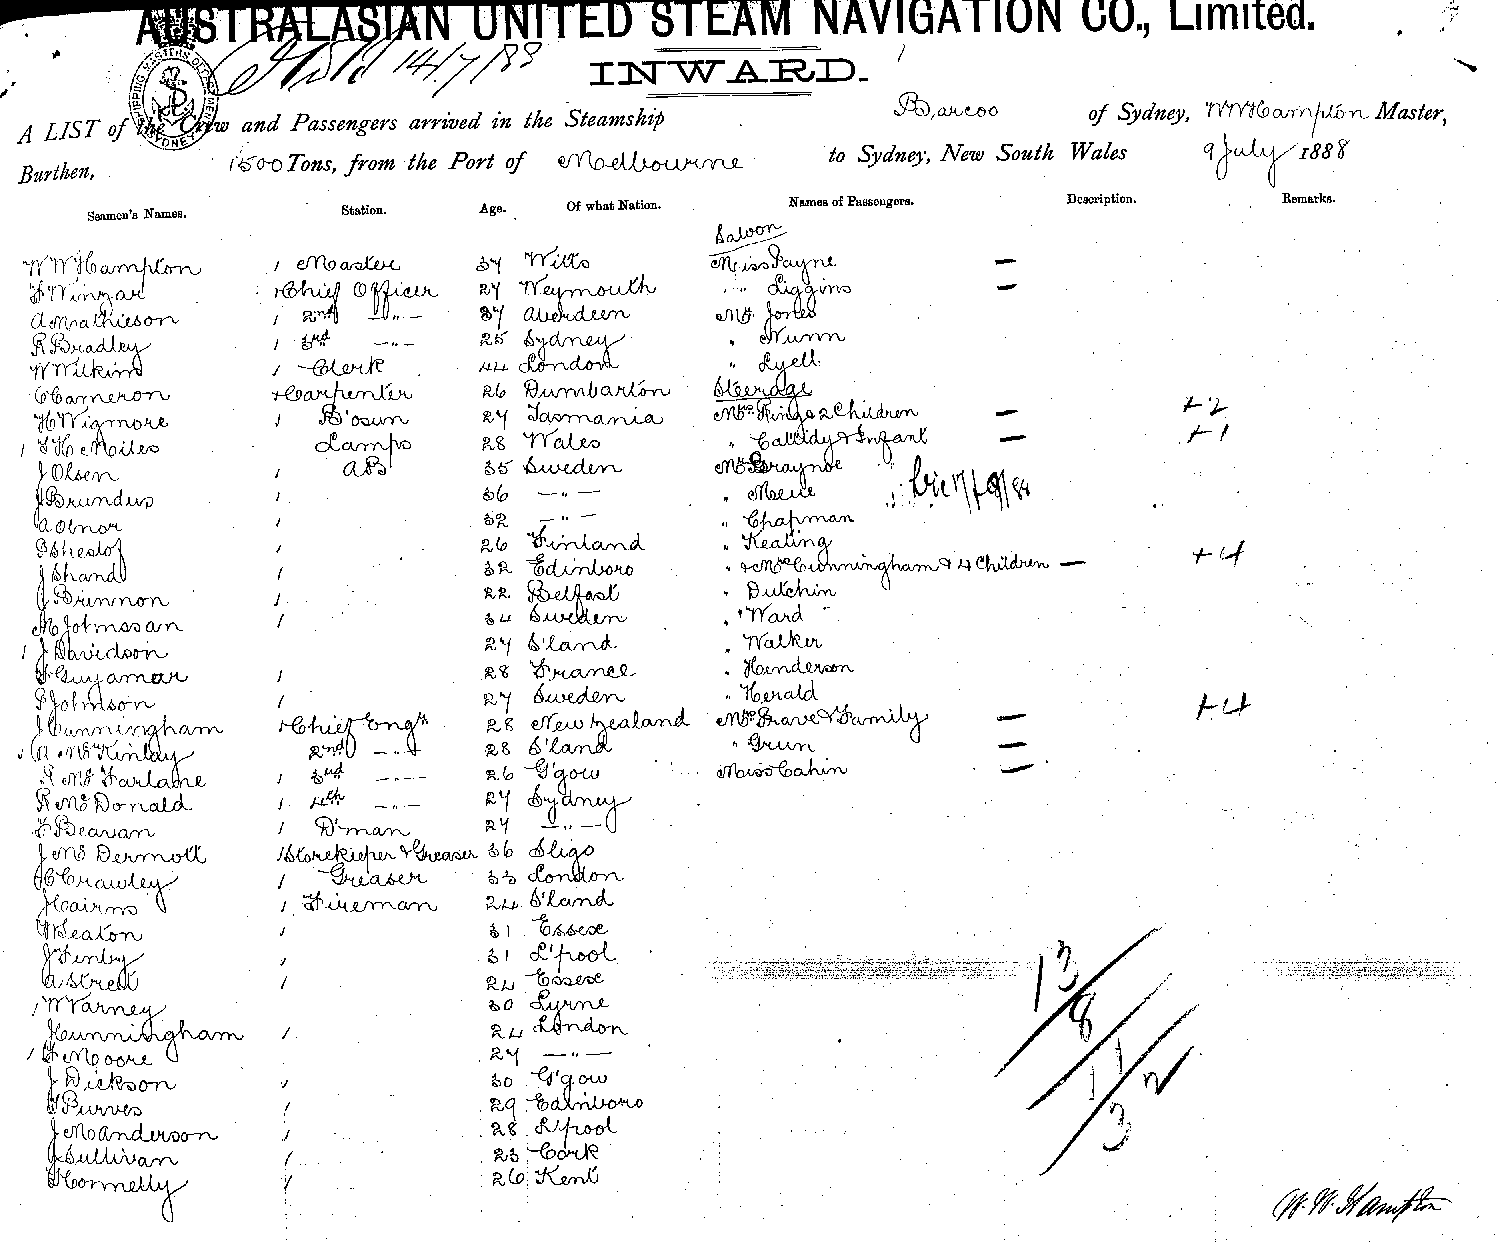 AUSTRALASIAN UNITED STEAM NAVIGATION CO., Limited.
14/7/88
INWARD.
A LIST of the Crew and Passengers arrived in the Steamship Barcoo of Sydney, WWHampton Master,
Burthen, 1500 Tons, from the Port of Melbourne to Sydney, New South Wales 9 July 1888
Seamen's Names. Station. Age. Of what Nation. Names of Passengers. Description. Remarks.
Saloon
WWHampton 1 Master 37 Wilts Miss Payne —
F Winzar 1 Chief Officer 27 Weymouth " " Liggins —
A Mathieson 1 2nd —"— 37 Aberdeen Mr Jones
R Bradley 1 3rd —"— 25 Sydney " Nunn
W Wilkins 1 Clerk 44 London " Lyell
C Cameron 1 Carpenter 26 Dumbarton Steerage
H Wigmore 1 B'osun 27 Tasmania Mrs Ring & 2 Children — +2
1 F H Miles Lamps 28 Wales " Callidy & Infant — +1
J Olsen 1 AB 35 Sweden Mr
J Brundus 1 36 —"— "
A Olnor 1 32 —"— " Chapman
1 26 Finland " Keating
J Shand 1 32 Edinboro " & Mrs Cunningham & 4 Children — +4
J Brunnon 1 22 Belfast " Dutchin
M Johnssan 1 34 Sweden " Ward
1 J Davidson 27 S'land " Walker
F Guyamar 1 28 France " Henderson
P Johnson 1 27 Sweden " Herald
J Cunningham 1 Chief Engr 28 New Zealand Mrs Grave & Family — +4
1 A McKinlay 2nd —"— 28 S'land " Grun —
R McFarlane 1 3rd —"— 26 G'gow Miss Cahin —
R McDonald 1 4th —"— 27 Sydney
F Beavan 1 D'man 27 —"—
J McDermott 1 Storekieper & Greaser 36 Sligo
C Crawley 1 Greaser 33 London
J Cairns 1 Fireman 24 S'land
W Seaton 1 31 Essex
J Finby 1 31 L'pool
A Street 1 24 Essex
1 W Varney 30 Lyrne
J Cunningham 1 24 London
1 F Moore 27 —"—
J Dickson 1 30 G'gow
T Purves 1 29 Edinboro
J M Anderson 1 28 L'pool
J Sullivan 1 23 Cork
T Connelly 1 26 Kent
13/8
11/32
W. W. Hampton